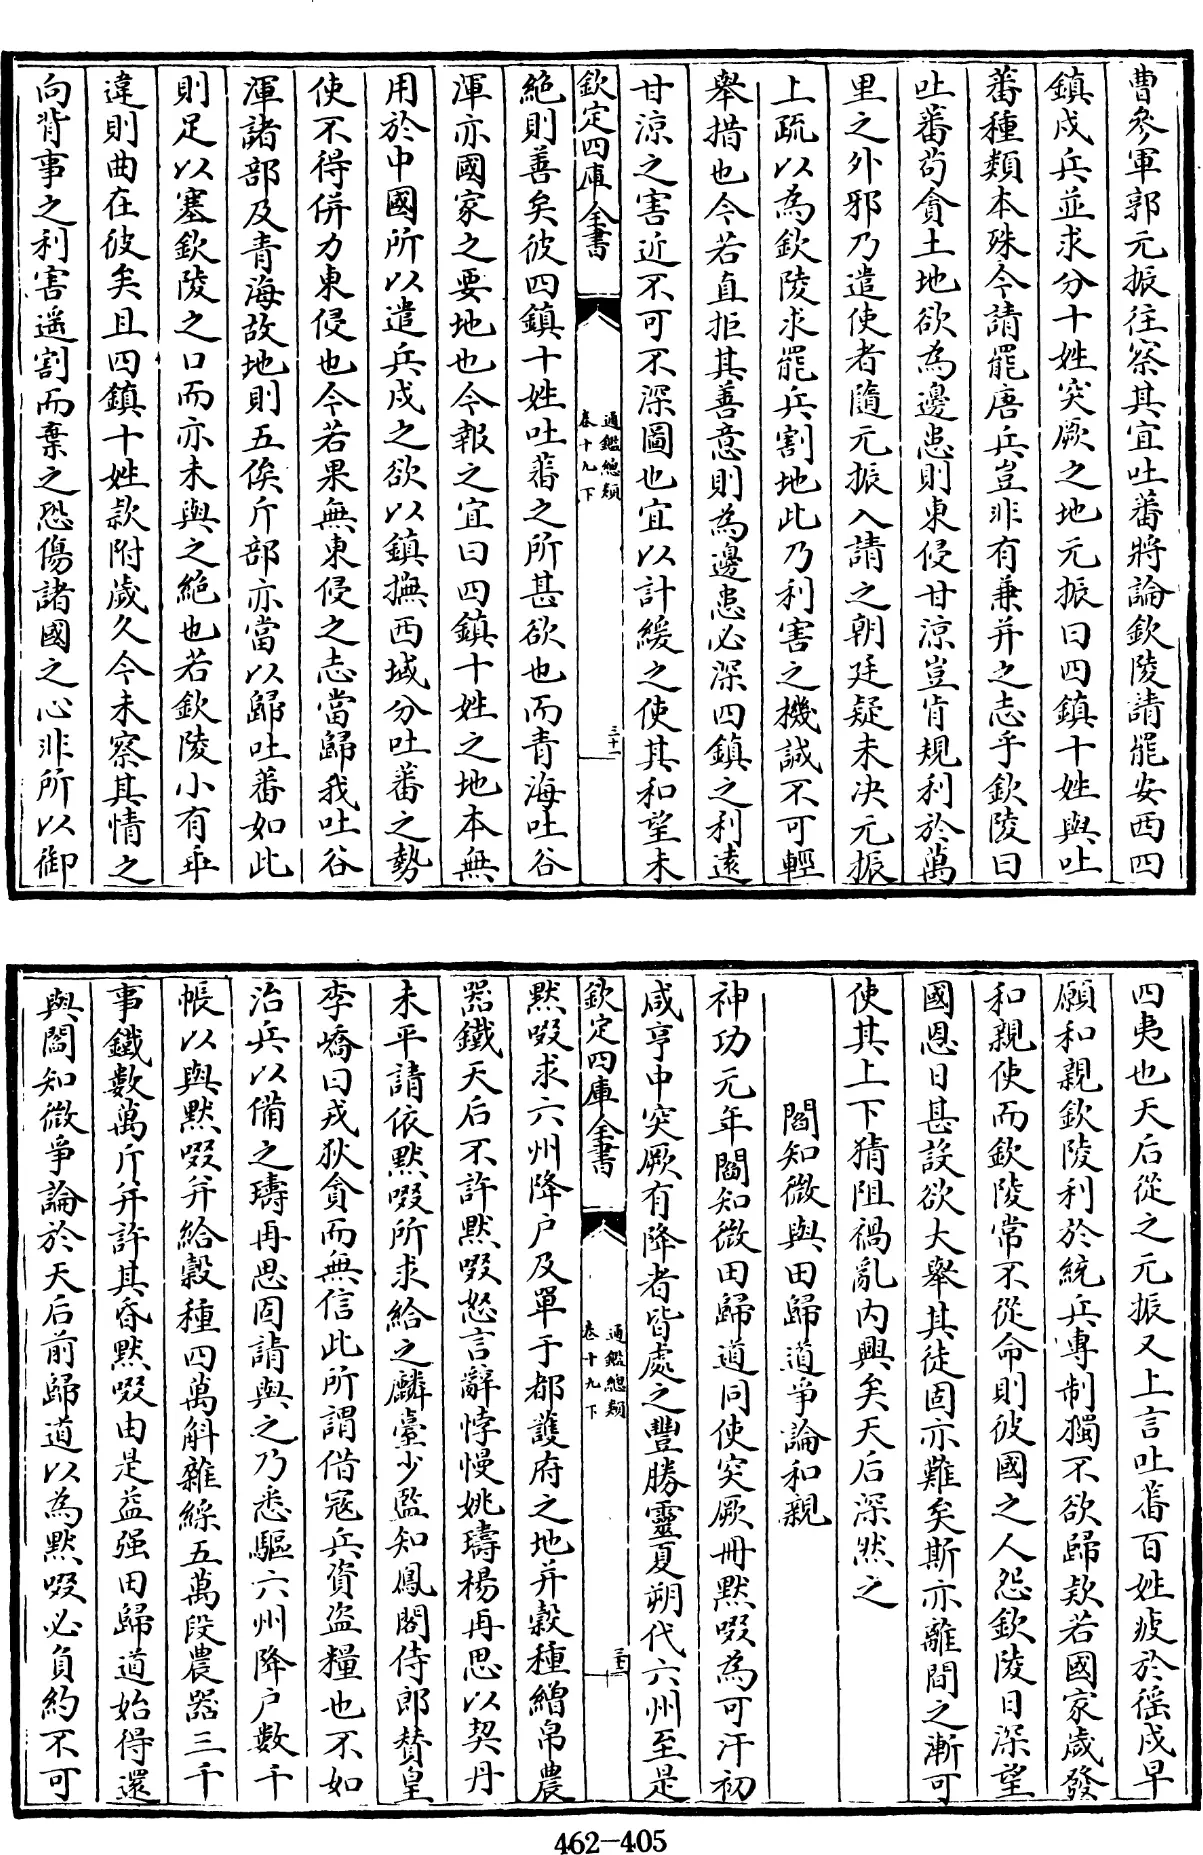 曹參軍郭元振往察其宜吐蕃將論欽陵請罷安西四
鎮戍兵並求分十姓突厥之地元振曰四鎮十姓與吐
蕃種類本殊今請罷唐兵豈非有兼并之志乎欽陵曰
吐蕃苟貪土地欲為邊患則東侵甘涼豈肯規利於萬
里之外邪乃遣使者隨元振入請之朝廷疑未決元振
上疏以為欽陵求罷兵割地此乃利害之機誠不可輕
舉措也今若直拒其善意則為邊患必深四鎮之利遠
甘涼之害近不可不深圖也宜以計緩之使其和望未
欽定四庫全書
通鑑總類
卷十九下
三十一
絕則善矣彼四鎮十姓吐蕃之所甚欲也而青海吐谷
渾亦國家之要地也今報之宜曰四鎮十姓之地本無
用於中國所以遣兵戍之欲以鎮撫西域分吐蕃之勢
使不得併力東侵也今若果無東侵之志當歸我吐谷
渾諸部及青海故地則五俟斤部亦當以歸吐蕃如此
則足以塞欽陵之口而亦未與之絕也若欽陵小有乖
違則曲在彼矣且四鎮十姓款附歲久今未察其情之
向背事之利害遥割而棄之恐傷諸國之心非所以御
四夷也天后從之元振又上言吐蕃百姓疲於徭戍早
願和親欽陵利於統兵專制獨不欲歸欵若國家歲發
和親使而欽陵常不從命則彼國之人怨欽陵日深望
國恩日甚設欲大舉其徒固亦難矣斯亦離間之漸可
使其上下猜阻禍亂内興矣天后深然之
閻知微與田歸道爭論和親
神功元年閻知微田歸道同使突厥冊默啜為可汗初
咸亨中突厥有降者皆處之豐勝靈夏朔代六州至是
欽定四庫全書
通鑑總類
卷十九下
三十二
默啜求六州降户及單于都護府之地并穀種繒帛農
器鐵天后不許默啜怒言辭悖慢姚璹楊再思以契丹
未平請依默啜所求給之麟臺少監知鳳閣侍郎贊皇
李嶠曰戎狄貪而無信此所謂借寇兵資盜糧也不如
治兵以備之璹再思固請與之乃悉驅六州降户數千
帳以與默啜并給穀種四萬斛雜綵五萬段農器三千
事鐵數萬斤并許其昏默啜由是益强田歸道始得還
與閻知微爭論於天后前歸道以為默啜必負約不可
462-405